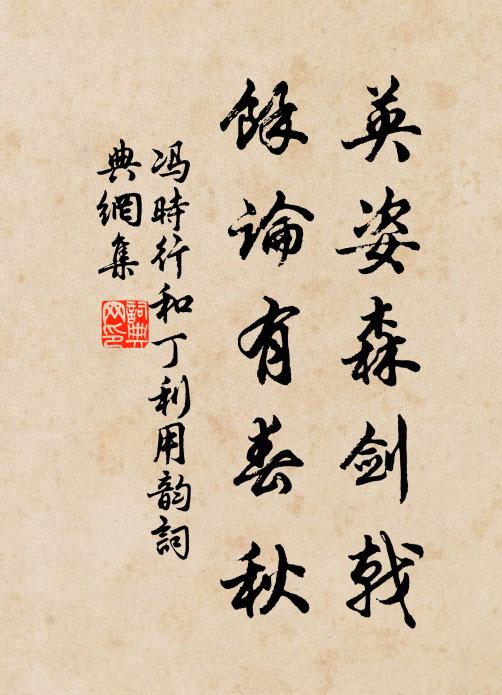 英姿森剑戟
餘論有春秋
冯時行和丁利用韵詞
典網集
詞典网印